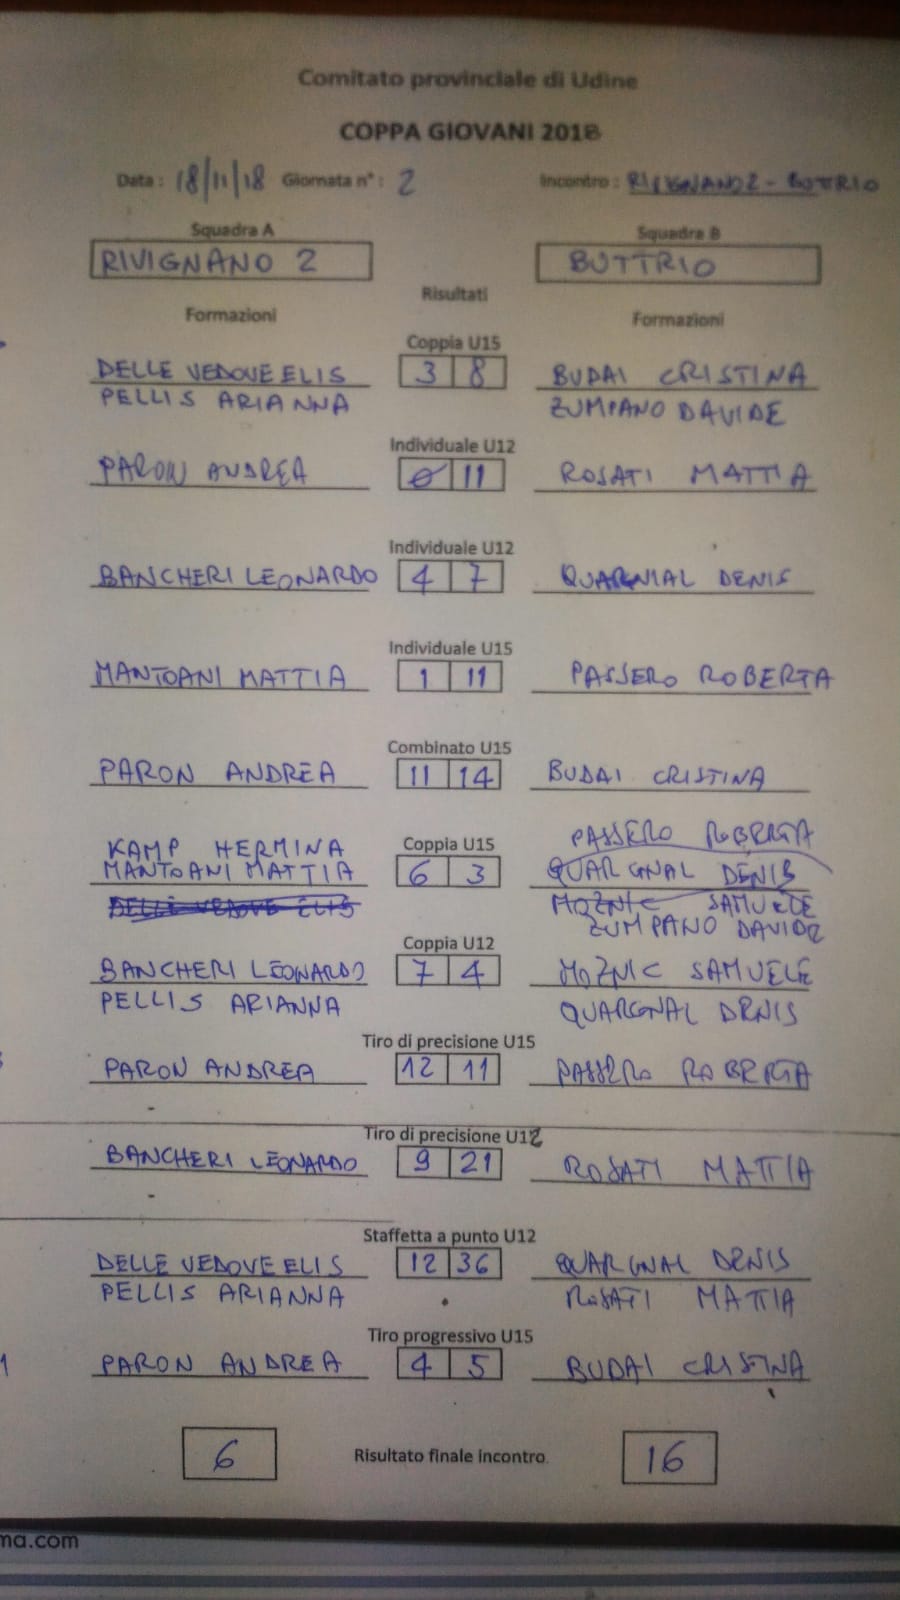 Comitato provinciale di Udine
COPPA GIOVANI 2018
Data : 18/11/18 Giornata n° : 2 Incontro : RIVIGNANO 2 - BUTTRIO
Squadra A Squadra B
RIVIGNANO 2 BUTTRIO
Risultati
Formazioni Formazioni
Coppia U15
DELLE VEDOVE ELIS 3 8 BUDAI CRISTINA
PELLIS ARIANNA ZUMPANO DAVIDE
Individuale U12
PARON ANDREA 0 11 ROSATI MATTIA
Individuale U12
BANCHERI LEONARDO 4 7 QUARGNAL DENIS
Individuale U15
MANTOANI MATTIA 1 11 PASSERO ROBERTA
Combinato U15
PARON ANDREA 11 14 BUDAI CRISTINA
PASSERO ROBERTA
KAMP HERMINA Coppia U15
MANTOANI MATTIA 6 3 QUARGNAL DENIS
DELLE VEDOVE ELIS MOZNIC SAMUELE
ZUMPANO DAVIDE
Coppia U12
BANCHERI LEONARDO 7 4 MOZNIC SAMUELE
PELLIS ARIANNA QUARGNAL DENIS
Tiro di precisione U15
PARON ANDREA 12 11 PASSERO ROBERTA
Tiro di precisione U12
BANCHERI LEONARDO 9 21 ROSATI MATTIA
Staffetta a punto U12
DELLE VEDOVE ELIS 12 36 QUARGNAL DENIS
PELLIS ARIANNA ROSATI MATTIA
Tiro progressivo U15
PARON ANDREA 4 5 BUDAI CRISTINA
6 Risultato finale incontro 16
ma.com